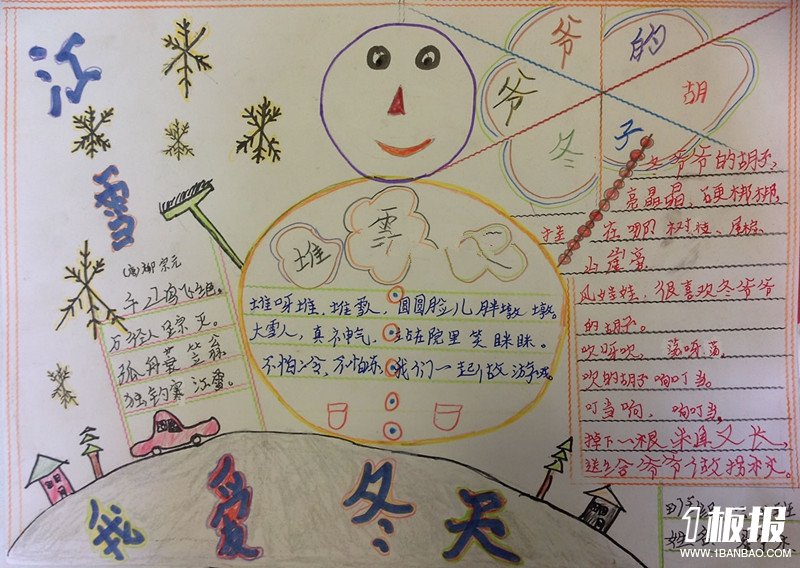 江
雪
(唐)柳宗元
千山鸟飞绝。
万径人踪灭。
孤舟蓑笠翁
独钓寒江雪。
堆雪人
堆呀堆,堆雪人,圆圆脸儿胖墩墩。
大雪人,真神气,站在院里笑眯眯。
不怕冷,不怕冻,我们一起做游戏。
冬爷爷的胡子
冬爷爷的胡子,
亮晶晶,硬梆梆
挂在哪 树枝、屋檐
山崖旁
风娃娃,很喜欢冬爷爷
的胡子。
吹呀吹,荡呀荡,
吹的胡子响叮当。
叮当响,响叮当,
掉下一根米庫又长,
送给爷爷做拐杖。
我爱冬天
1板报
WWW.1BANBAO.COM